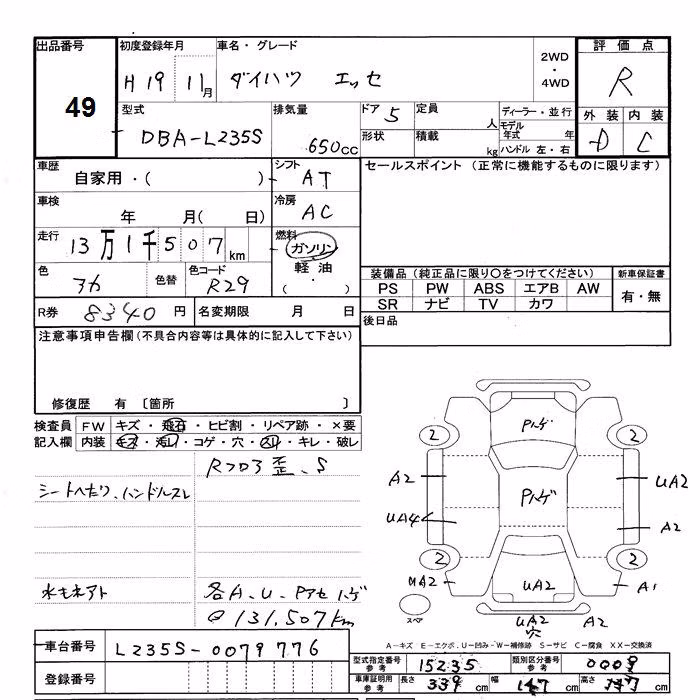 出品番号 初度登録年月 車名・グレード 2WD・4WD 評価点
49 H19 11月 ダイハツ エッセ R
型式 排気量 ドア 5 定員 人 ディーラー・並行 外装 内装
DBA-L235S 650cc 形状 積載 kg モデル年式 年 D C
ハンドル 左・右
車歴 自家用・( ) シフト AT セールスポイント (正常に機能するものに限ります)
車検 年 月( 日) 冷房 AC
走行 13万1千507km 燃料 ガソリン
軽油
( ・ )
色 アカ 色替 色コード R29 装備品 (純正品に限り○をつけてください) 新車保証書
PS PW ABS エアB AW 有・無
SR ナビ TV カワ
R券 8340円 名変期限 月 日 後日品
注意事項申告欄(不具合内容等は具体的に記入して下さい)
修復歴 有 〔箇所 〕
検査員 FW キズ・飛石・ヒビ割・リペア跡・×要
記入欄 内装 キズ・汚レ・コゲ・穴・スレ・キレ・破レ
Rフロア歪、S
シートへたり、ハンドルスレ
水モネアト 各A、U、Pアセハゲ
@131,507km
Pハゲ
2 2
A2 Pハゲ UA2
UA4 A2
2 2
UA2 UA2 A1
スペア UA2 A2
穴
A-キズ E-エクボ U-凹み W-補修跡 S-サビ C-腐食 XX-交換済
車台番号 L235S-0079776
型式指定番号 参考 15235 類別区分番号 参考 0009
登録番号 車庫証明用 参考 長さ 339cm 幅 147cm 高さ 147cm